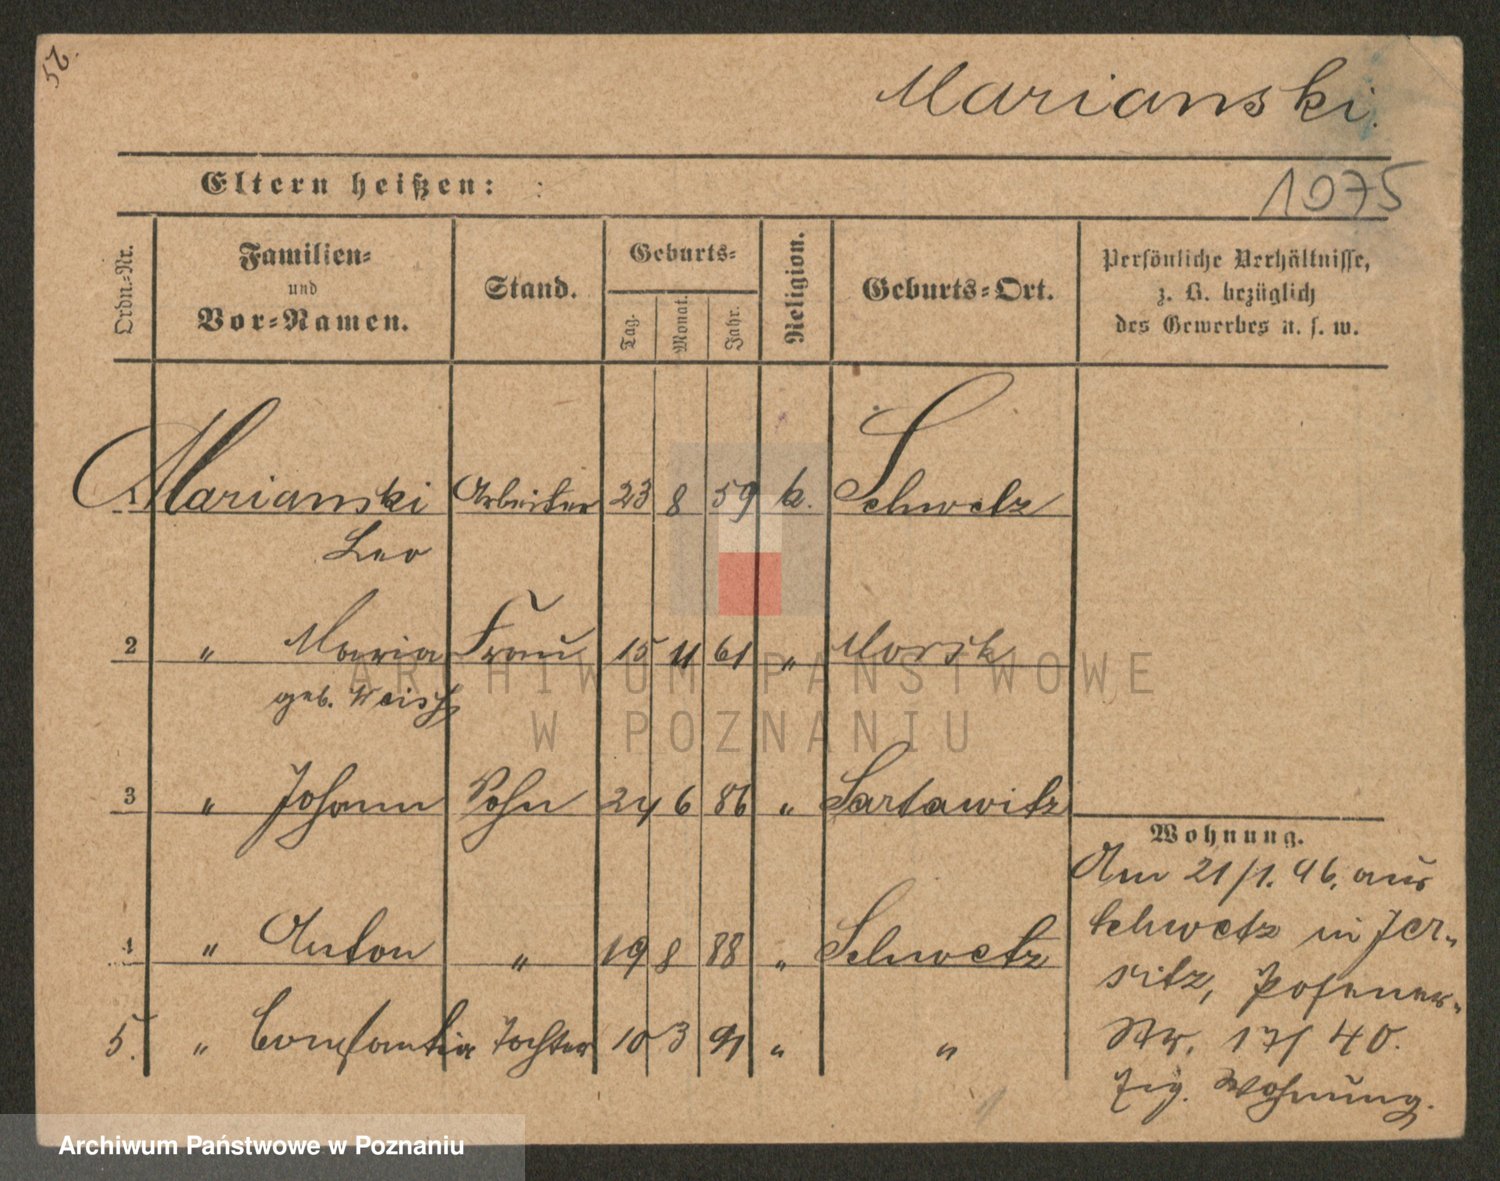 52.
Marianski.
Eltern heißen:
1075
Ordn.-Nr.
Familien-
und
Vor-Namen.
Stand.
Geburts-
Tag.
Monat.
Jahr.
Religion.
Geburts-Ort.
Persönliche Verhältnisse,
z. B. bezüglich
des Gewerbes u. s. w.
1 Marianski Arbeiter 23 8 59 k. Schwetz
Leo
2 " Maria Frau 15 11 61 " Morsk
geb. Weiss
3 " Johann Sohn 24 6 86 " Sartawitz
4 " Anton " 19 8 88 " Schwetz
5. " Constantia Tochter 10 3 91 " "
Wohnung.
Am 21/1. 96. aus
Schwetz in Jer-
sitz, Posener-
Str. 17/40.
Wohnung.
ARCHIWUM PAŃSTWOWE
W POZNANIU
Archiwum Państwowe w Poznaniu